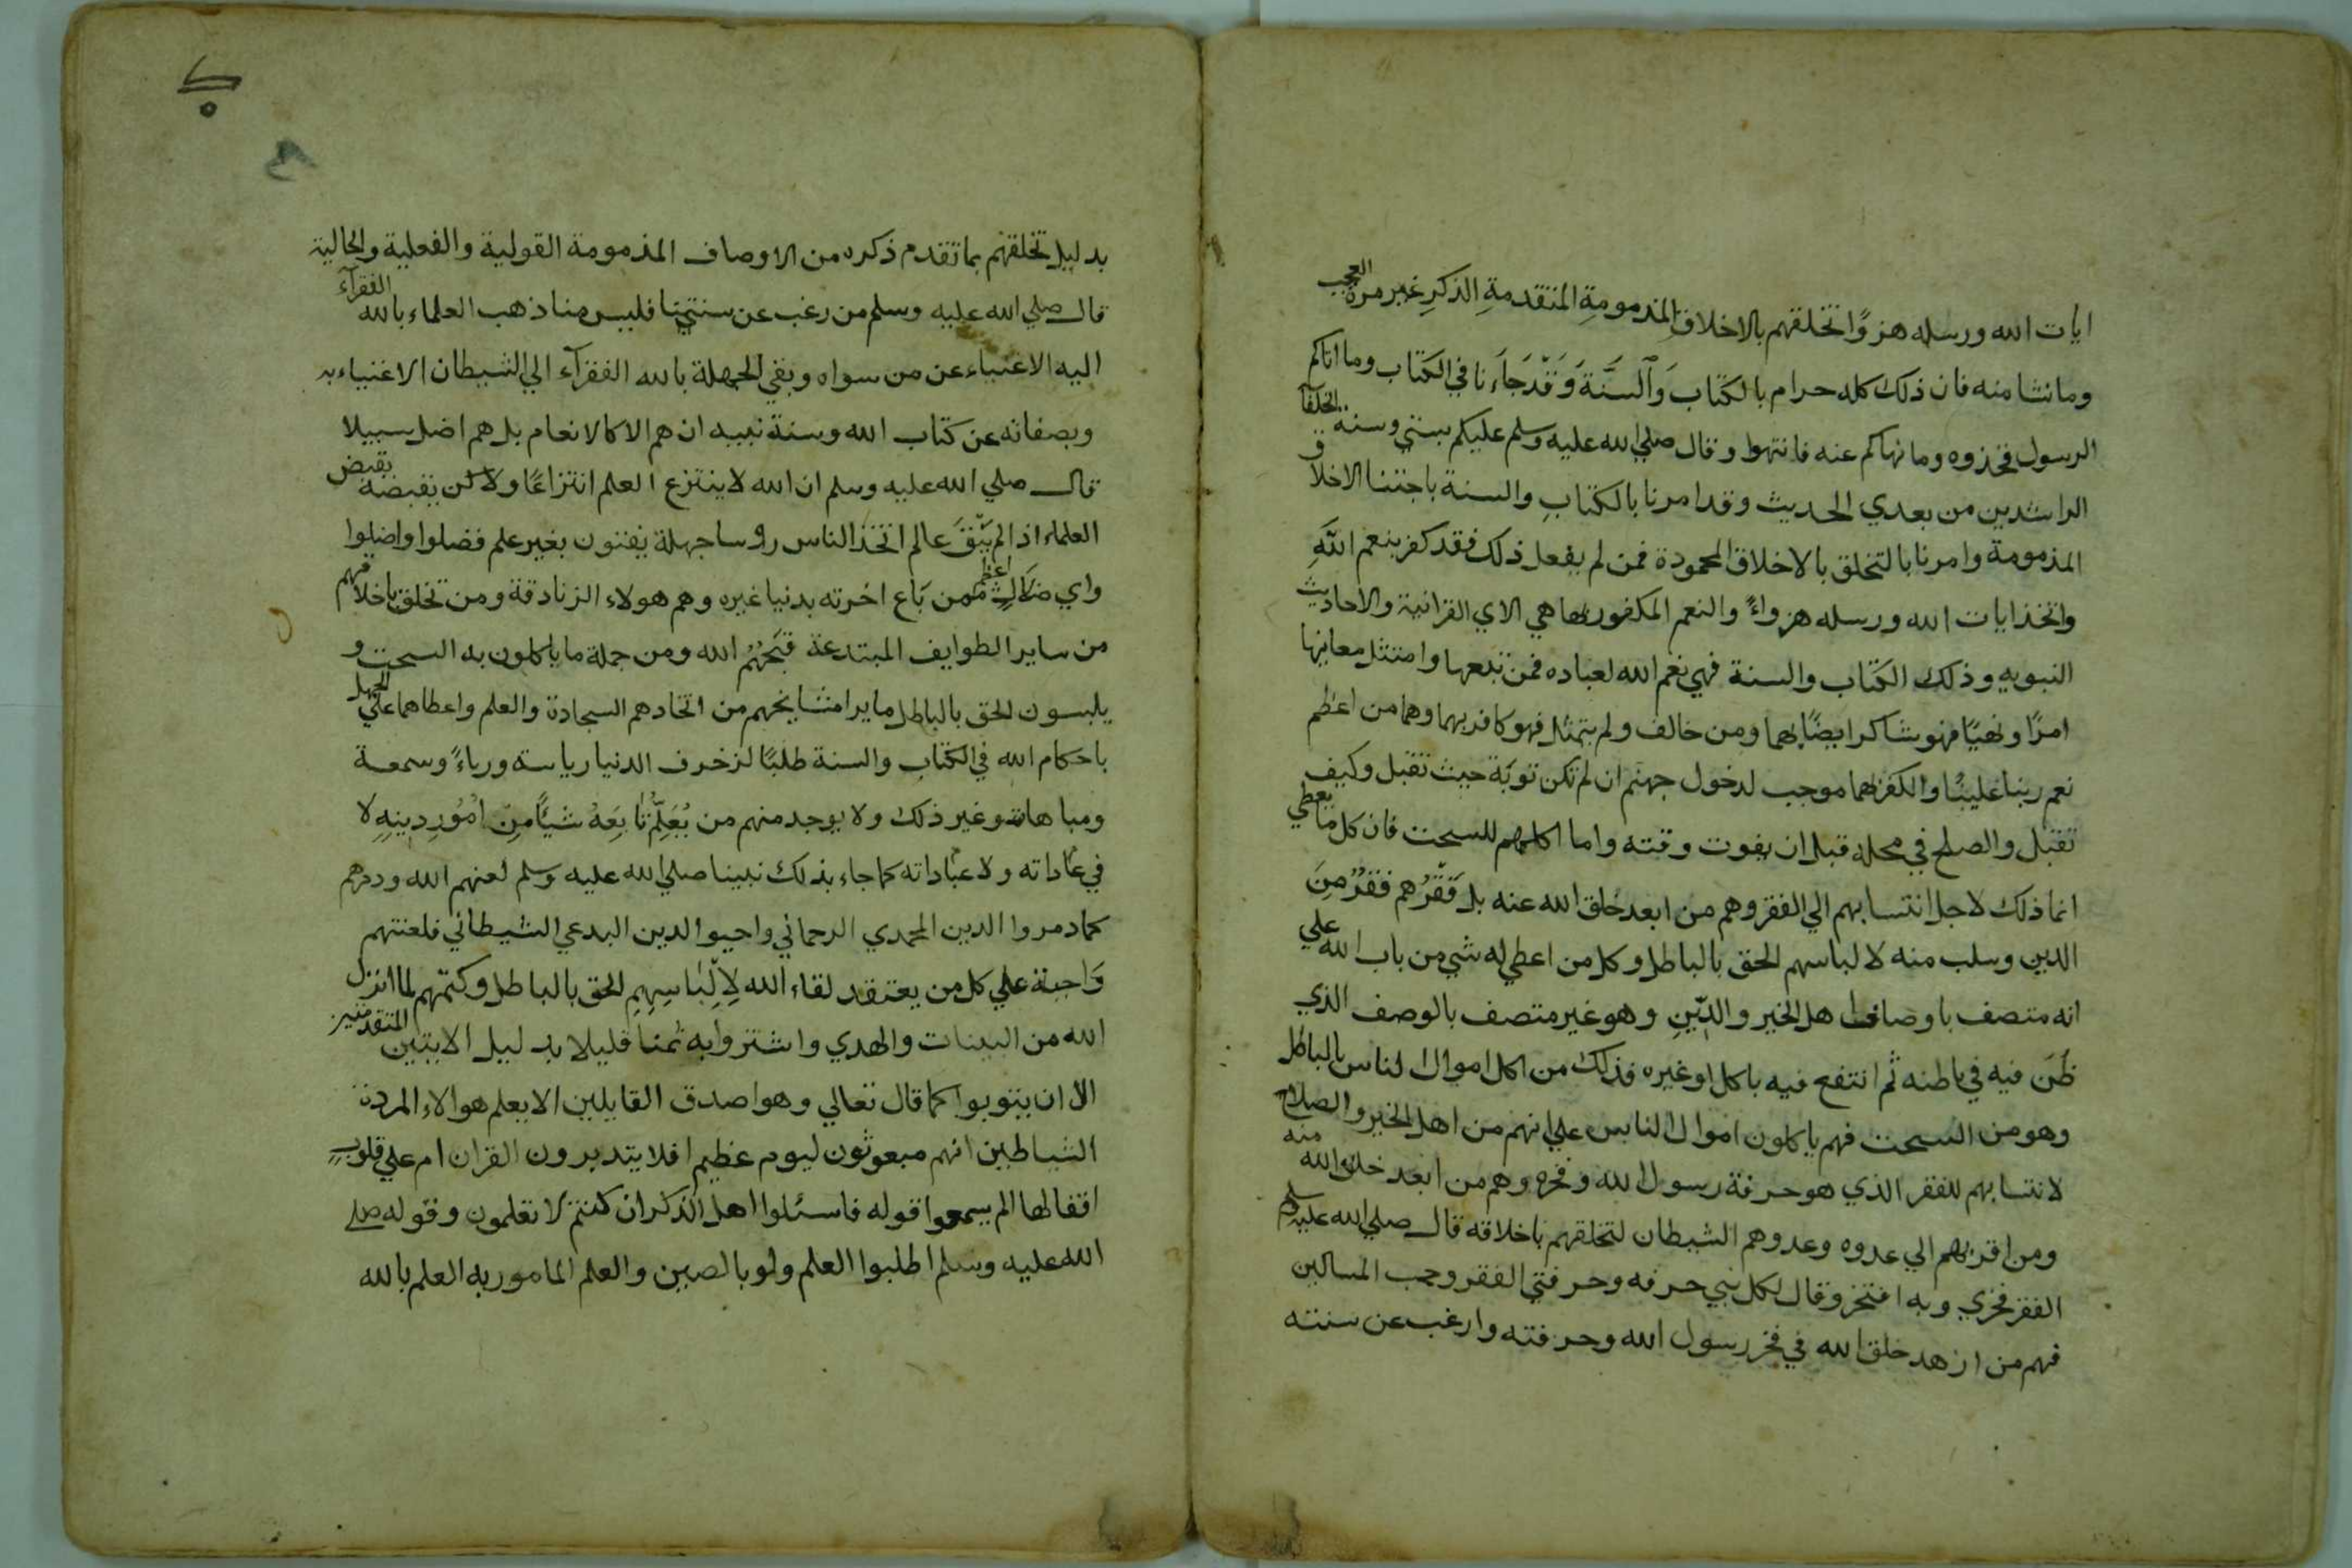 ايات الله ورسله هزوًا تخلقهم بالاخلاق المذمومةِ المتقدمةِ الذكرِ غير مرة العجب
وما نشا منه فان ذلك كله حرام بالكتاب وَالسنَّة وَقَدْجَاَءَنا في الكتاب وما اتاكم
الرسول فخذوه وما نهاكم عنه فانتهوا وقال صلي الله عليه وسلم عليكم بسنتي وسنة الخلفآ
الراشدين من بعدي الحديث وقد امرنا بالكتابِ والسنة باجتنا الاخلاق
المذمومة وامرنا بالتخلق بالاخلاق المحمودة فمن لم يفعل ذلك فقد كفر بنعم اللَّهِ
واتخذ ايات الله ورسله هزواءً والنعم المكفور بها هي الاي القرانية والاحاديث
النبويه وذلك الكتاب والسنة فهي نعم الله لعباده فمن تبعها وامتثل معانيها
امرًا ونهيًا فهو شاكر ايضًا بهما ومن خالف ولم يتمثل فهو كافر بهما وهما من اعظم
نعم ربنا علينًا والكفر بهما موجب لدخول جهنم ان لم تكن توبَة حيث تقبل وكيف
تقبل والصلح في محله قبل ان يفوت وقته واما اكلهم للسحت فان كل ما يعطي
انما ذلك لاجل انتسابهم الي الفقر وهم من ابعد خلق الله عنه بل فَقْرُهم فقرٌ مِنَ
الدين وسلب منه لالباسهم الحق بالباطل وكل من اعطي له شي من باب الله علي
انه متصف باوصاف اهل الخير والدِّينِ وهو غير متصف بالوصف الذي
ظُنَ فيه في باطنه ثم انتفع فيه باكل او غيره فذلك من اكل اموال الناس بالباطل
وهو من السحت فهم ياكلون اموال الناس علي انهم من اهل الخير والصلاح
لانتسابهم للفقر الذي هو حرفة رسول الله وفخره وهم من ابعد خلق الله منه
ومن اقربهم الي عدوه وعدوهم الشيطان لتخلقهم باخلاقه قال صلي الله عليه وسلم
الفقر فخري وبه افتخر وقال لكل نبي حرفه وحرفتي الفقر وحب المساكين
فهم من ازهد خلق الله في فخر رسول الله وحرفته وارغب عن سنته
بدليل تخلقهم بما تقدم ذكره من الاوصاف المذمومة القولية والفعلية والحالية
قال صلي الله عليه وسلم من رغب عن سنتي فليس منا ذهب العلماء بالله الفقرآء
اليه الاغنياء عن من سواه وبقي الجهلة بالله الفقرآء الي الشيطان الاغنياء به
وبصفاته عن كتاب الله وسنة نبيه ان هم الا كالانعام بل هم اضل سبيلا
قال صلي الله عليه وسلم ان الله لا ينتزع العلم انتزاعًا ولاكن يقبضه بقبض
العلماء اذا لم يَبْقَ عالم اتخذ الناس روسا جهلة يفتون بغير علم فضلوا واضلوا
واي ضَالٍ اعظم ممن بَاع اخرته بدنيا غيره وهم هولاء الزنادقة ومن تخلق باخلاقهم
من ساير الطوايف المبتدعة قبَحَهُمُ الله ومن جملة ما ياكلون به السحت و
يلبسون الحق بالباطل ما يرا مشايخهم من اتخادهم السجادة والعلم واعطاهما علي الجهل
باحكام الله في الكتاب والسنة طلبًا لزخرف الدنيا رياسة ورياءً وسمعة
ومباهات وغير ذلك ولا يوجد منهم من يُعَلِّمُ تَابِعَهُ شيئًا مِن امُوُرِدِينِهِ لا
في عَاداته ولا عبَاداته كما جاء بذلك نبينا صلي الله عليه وسلم لعنهم الله ودمرهم
كما دمروا الدين المحمدي الرحماني واحيوا الدين البدعي الشيطاني فلعنتهم
وَاجبة علي كل من يعتقد لقاء الله لِاِلْبَاسِهِمِ الحق بالباطل وكتمهم لما انزل
الله من البينات والهدي واشتروا به ثمنا قليلا بدليل الايتين المتقدمتين
الا ان يتوبوا كما قال تعالي وهو اصدق القايلين الا يعلم هوالاء المردة
الشياطين انهم مبعوثون ليوم عظيم افلا يتدبرون القران ام علي قلوبٍ
اقفالها الم يسمعوا قوله فاسئلوا اهل الذكر ان كنتم لا تعلمون وقوله صلي
الله عليه وسلم اطلبوا العلم ولو بالصين والعلم المامور به العلم بالله